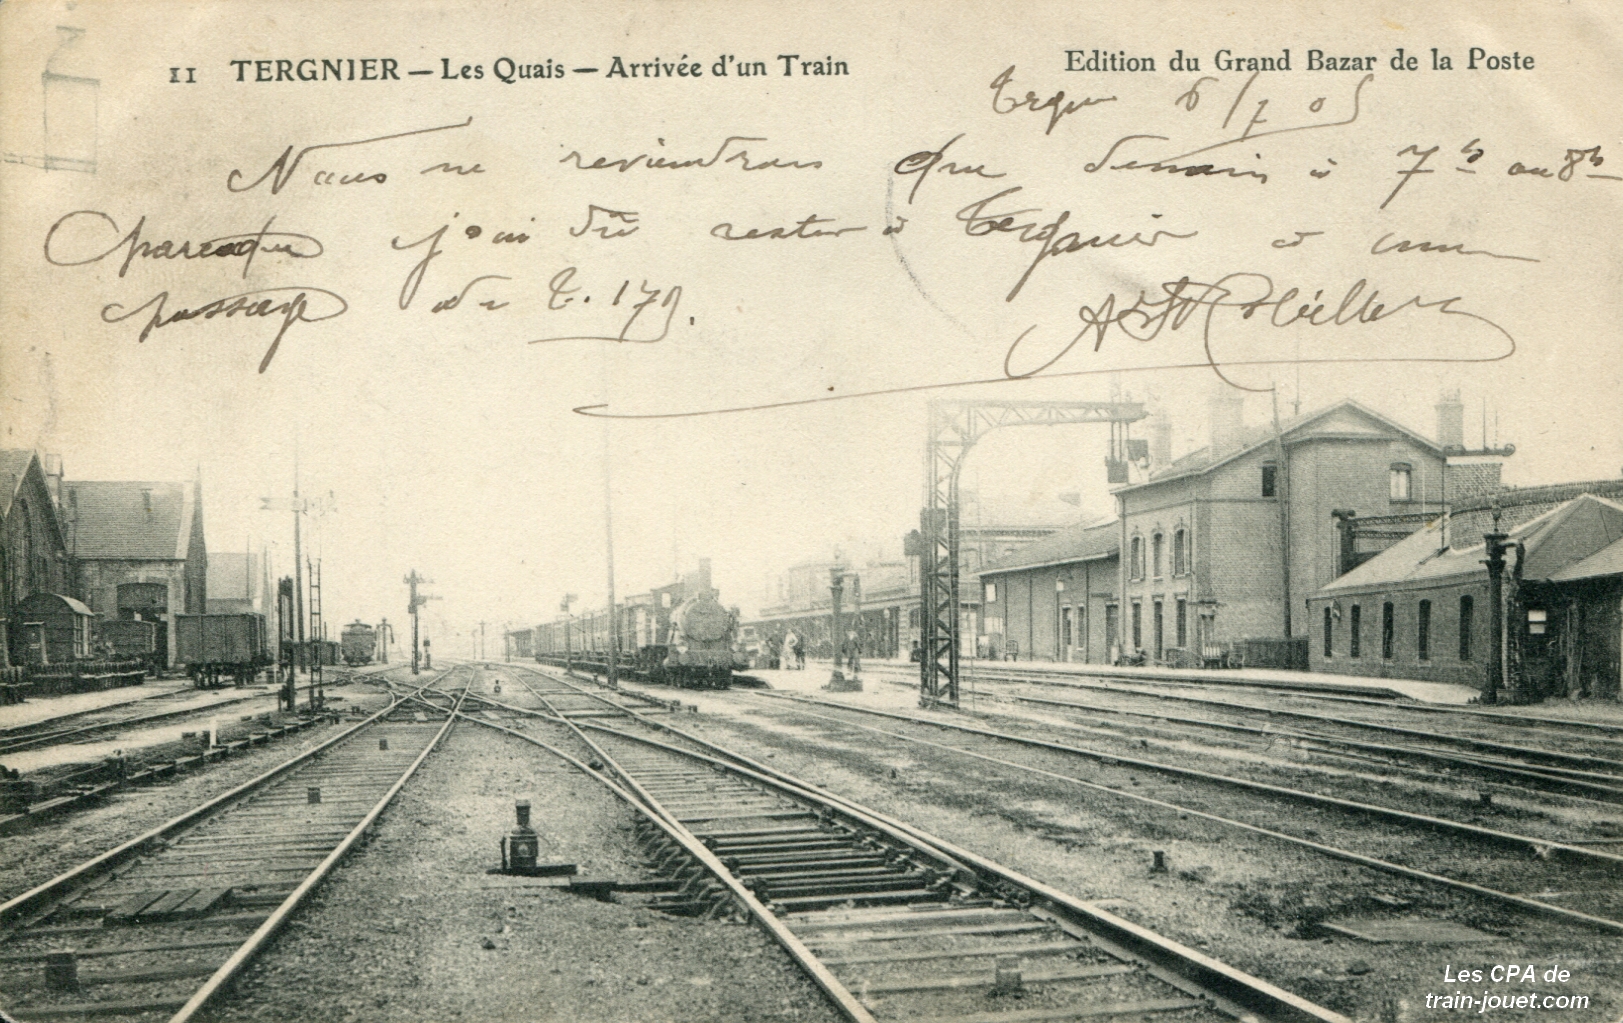 11 TERGNIER — Les Quais — Arrivée d'un Train
Edition du Grand Bazar de la Poste
6/7 05
Nous ne reviendrons que demain à 7h ou 8h
parceque j'ai dû rester à Tergnier
passage du t. 179.
Les CPA de
train-jouet.com